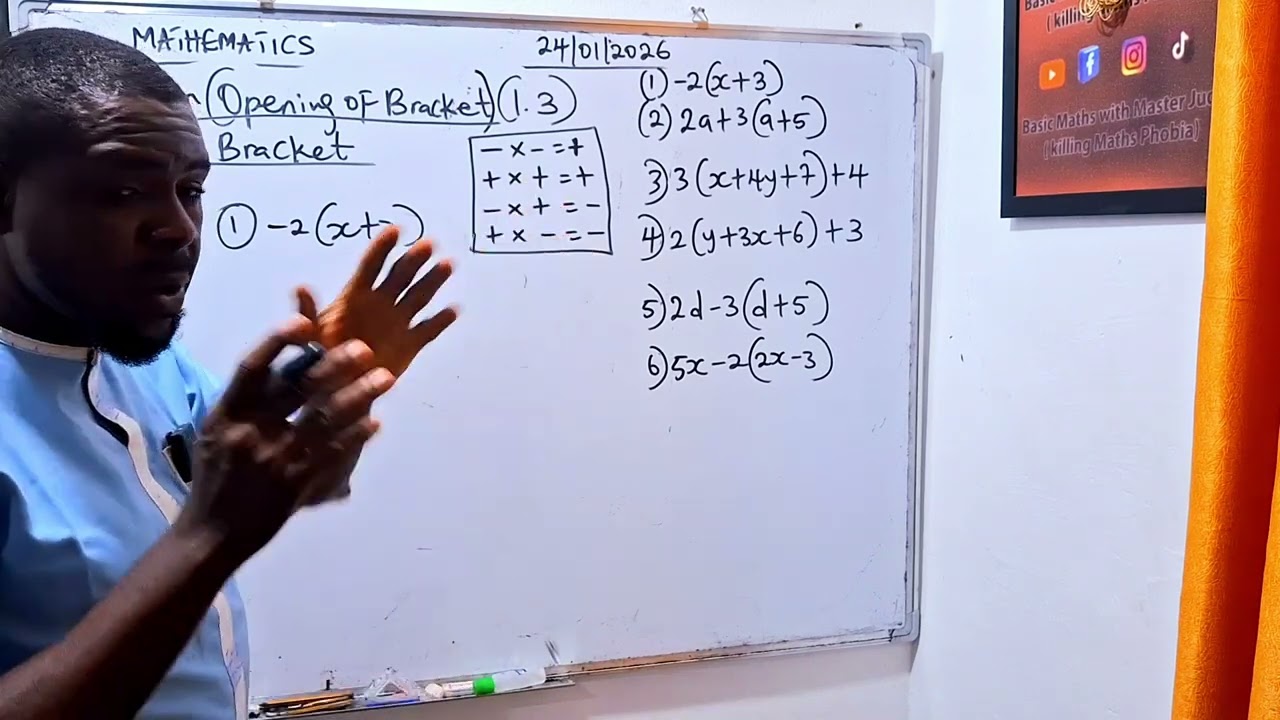 MATHEMATICS
24/01/2026
(Opening of Bracket)(1.3)
Bracket
- × - = +
+ × + = +
- × + = -
+ × - = -
① -2(x+
(1) -2(x+3)
(2) 2a+3(a+5)
3) 3(x+4y+7)+4
4) 2(y+3x+6)+3
5) 2d-3(d+5)
6) 5x-2(2x-3)
Basic
(killing Maths
Basic Maths with Master
(killing Maths Phobia)